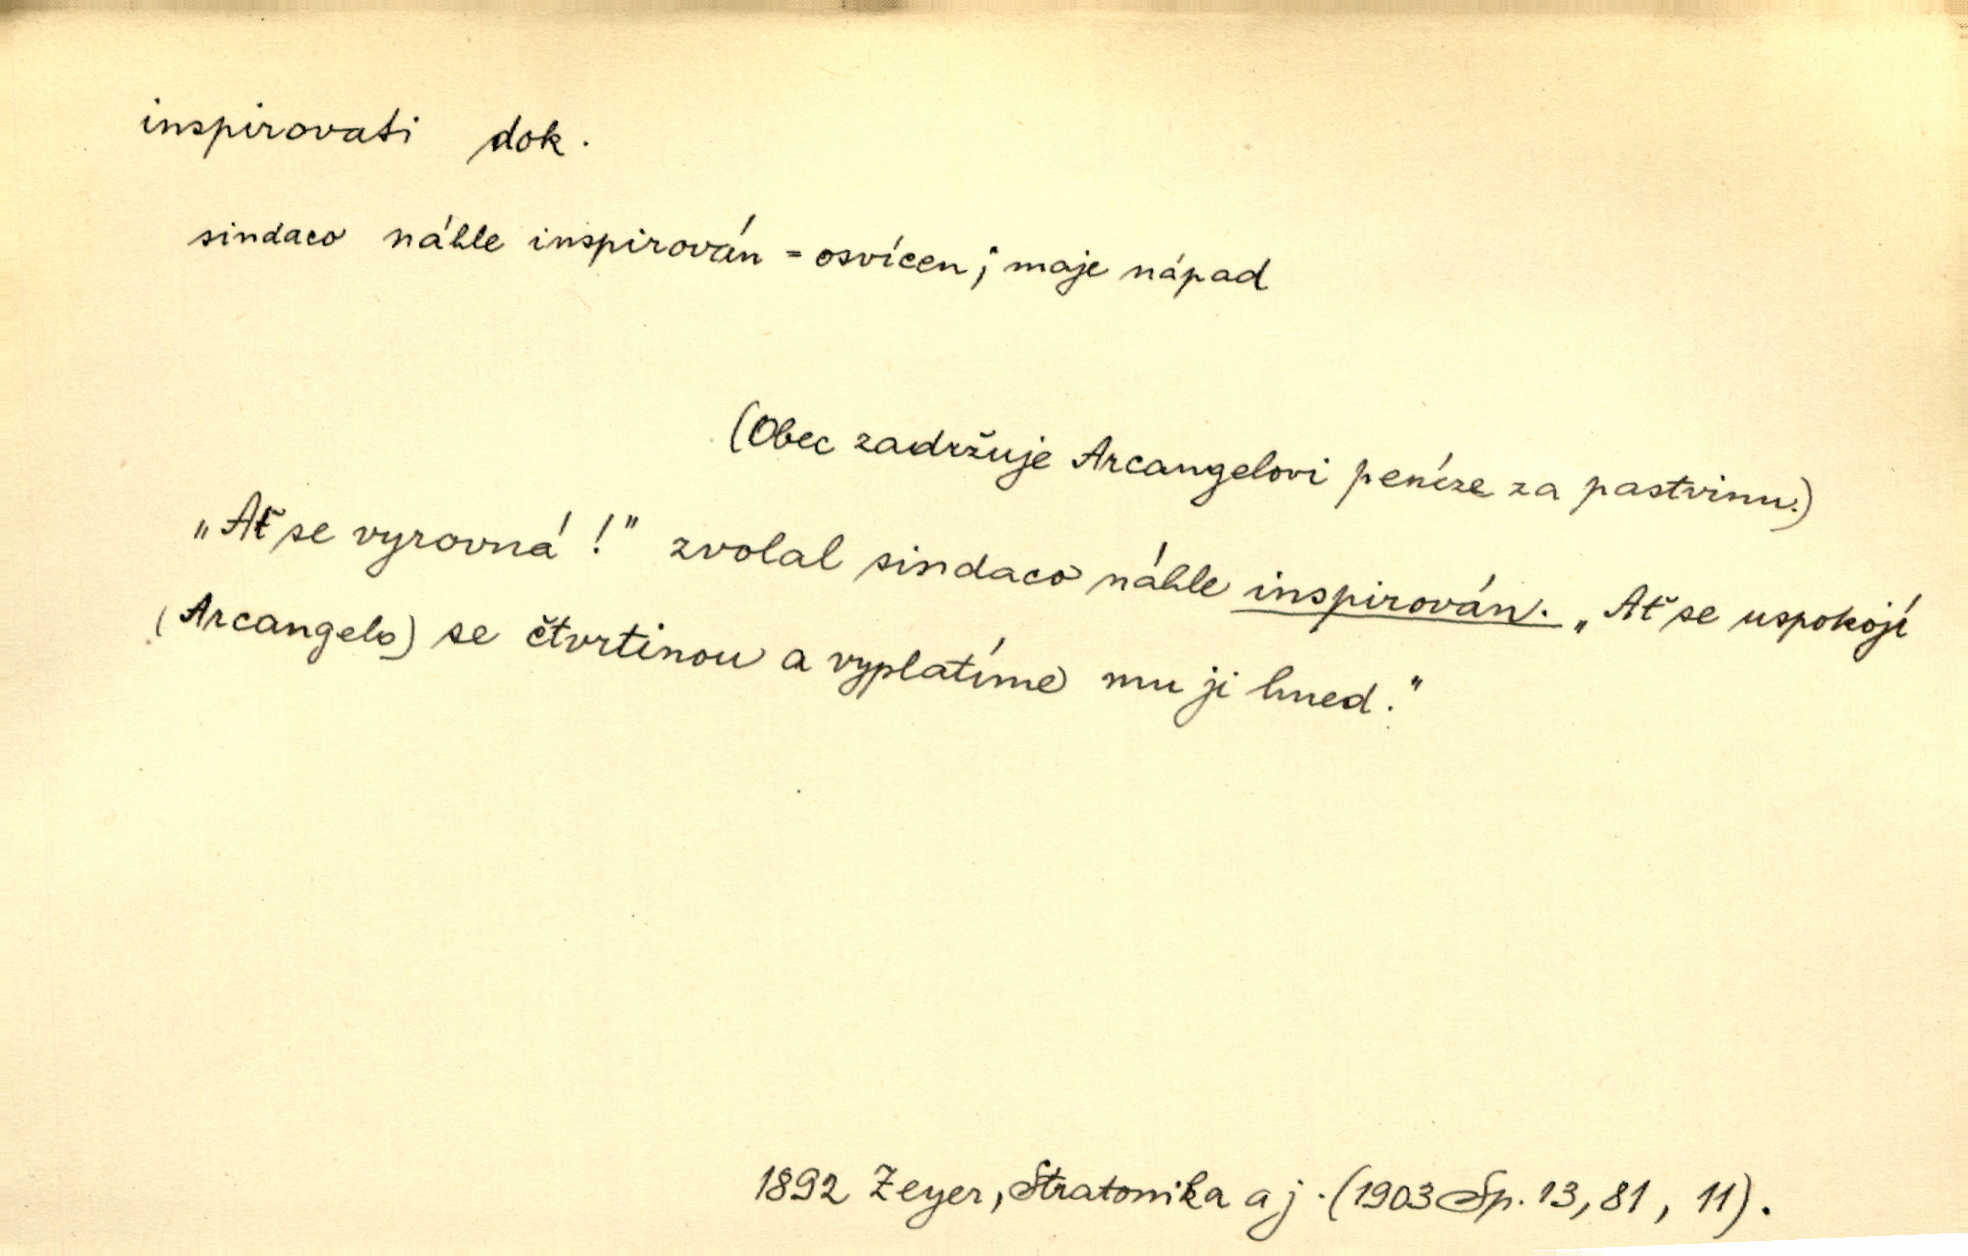 inspirovati dok.
sindaco náhle inspirován = osvícen; maje nápad
(Obec zadržuje Arcangelovi peníze za pastvinu.)
„Ať se vyrovná!" zvolal sindaco náhle inspirován. „Ať se uspokojí
(Arcangelo) se čtvrtinou a vyplatíme mu ji hned."
1892 Zeyer, Stratonika a j. (1903 Sp. 13, 81, 11).